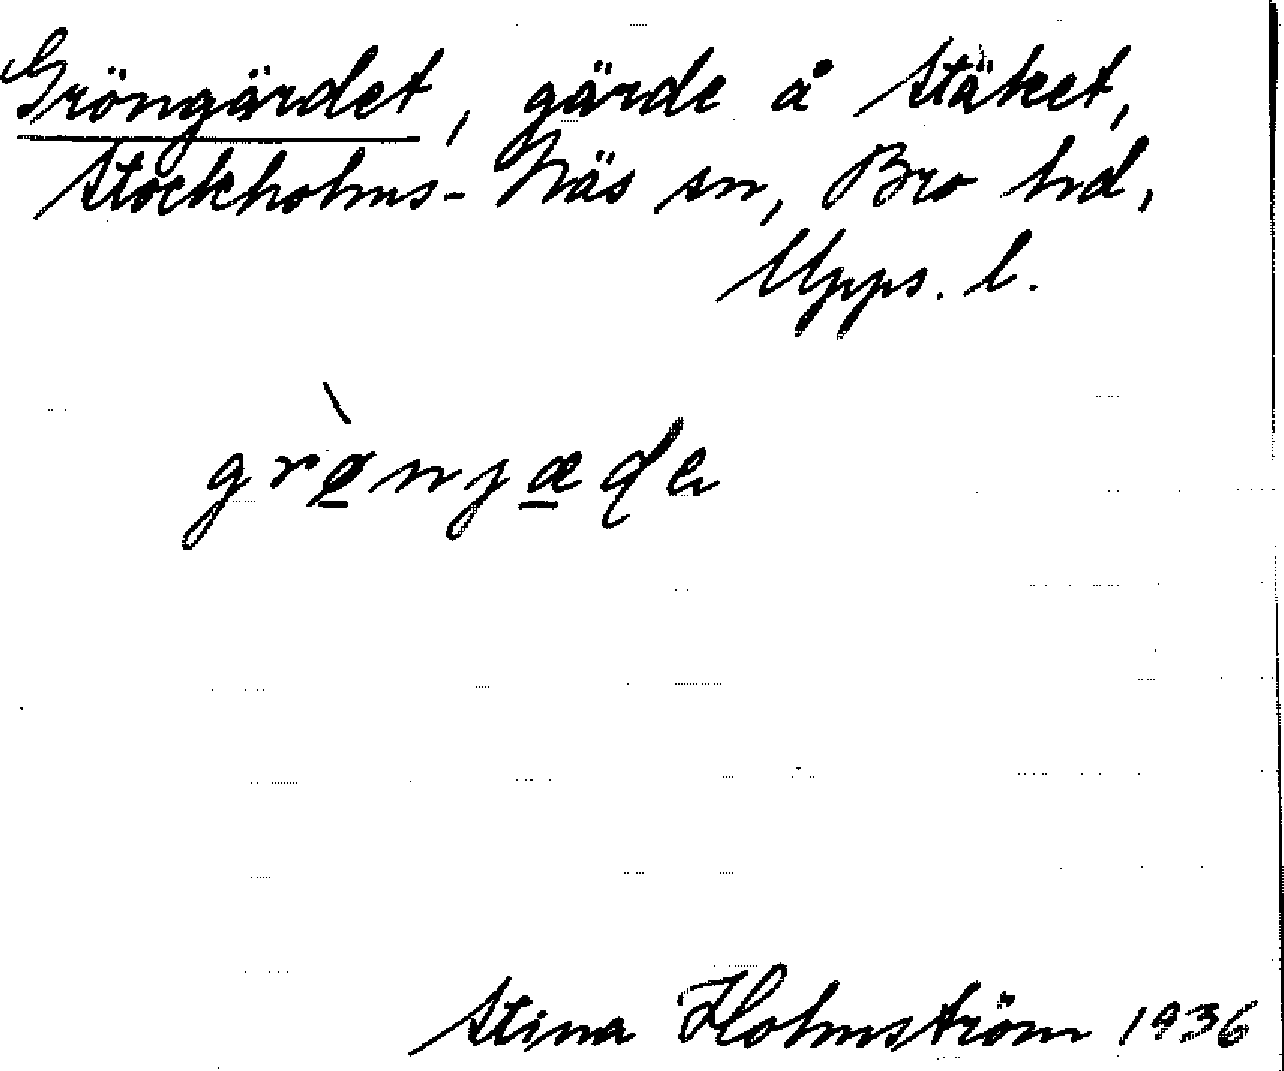 Gröngärdet, gärde å Stäket,
Stockholms-Näs sn, Bro hd,
Upps. l.
grø̀njæɖe
Stina Holmström 1936